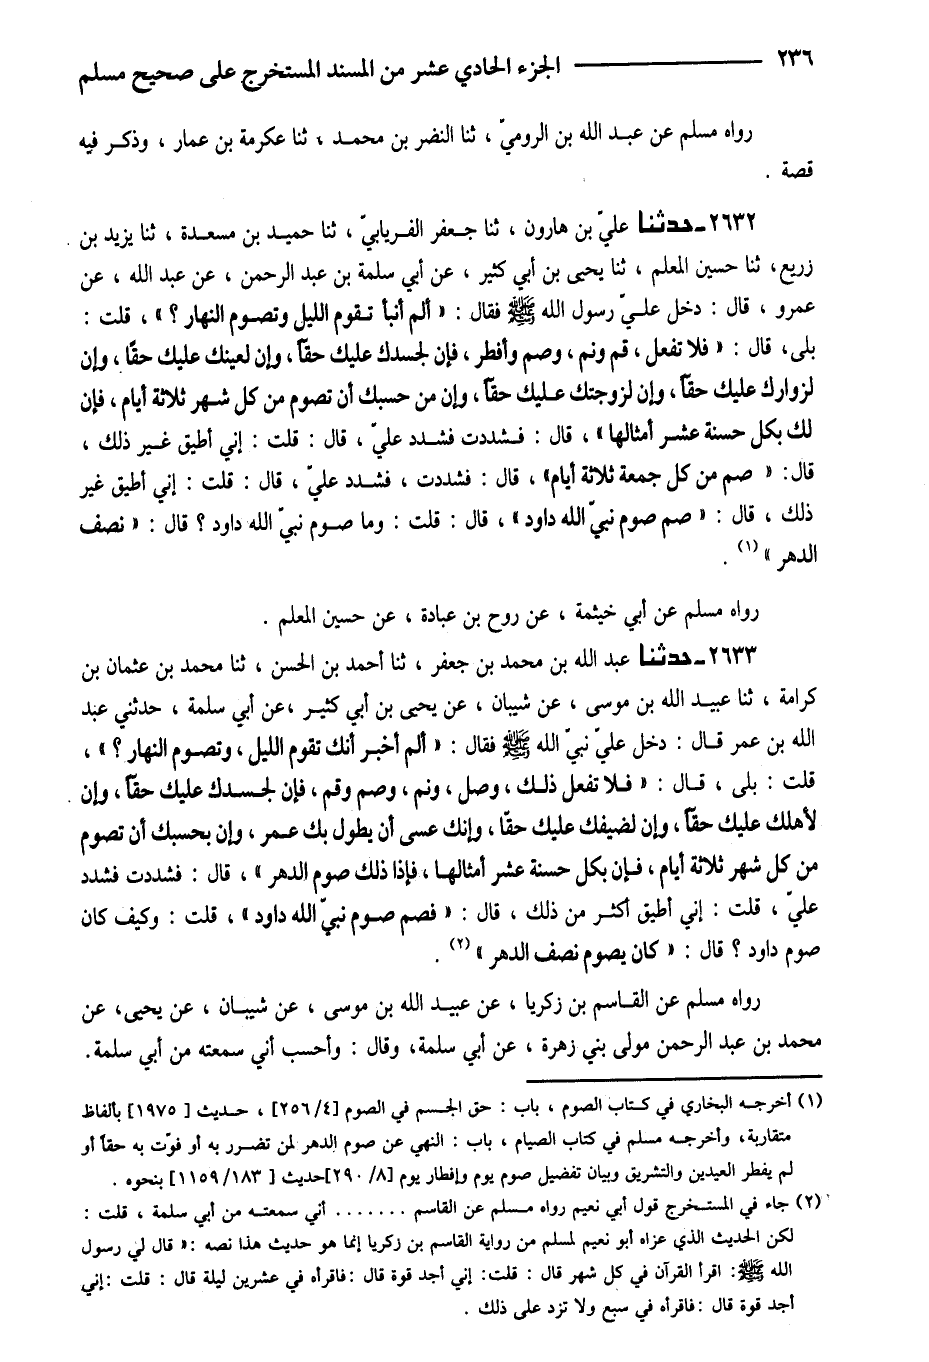 ٢٣٦ ــــــ الجزء الحادي عشر من المسند المستخرج على صحيح مسلم
رواه مسلم عن عبد الله بن الروميّ ، ثنا النضر بن محمد ، ثنا عكرمة بن عمار ، وذكر فيه
قصة .
٢٦٣٢ـ حدثنا عليّ بن هارون ، ثنا جعفر الفريابيّ ، ثنا حميد بن مسعدة ، ثنا يزيد بن
زريع، ثنا حسين المعلم ، ثنا يحيى بن أبي كثير ، عن أبي سلمة بن عبد الرحمن ، عن عبد الله ، عن
عمرو ، قال : دخل عليّ رسول الله ﷺ فقال : « ألم أنبأ تقوم الليل وتصوم النهار ؟ » ، قلت :
بلى، قال : « فلا تفعل ، قم ونم ، وصم وأفطر ، فإن لجسدك عليك حقاً ، وإن لعينك عليك حقًا ، وإن
لزوارك عليك حقاً ، وإن لزوجتك عليك حقاً ، وإن من حسبك أن تصوم من كل شهر ثلاثة أيام ، فإن
لك بكل حسنة عشر أمثالها » ، قال : فشددت فشدد عليّ ، قال : قلت : إني أطيق غير ذلك ،
قال: « صم من كل جمعة ثلاثة أيام» ، قال : فشددت ، فشدد عليّ ، قال : قلت : إني أطيق غير
ذلك ، قال : « صم صوم نبيّ الله داود » ، قال : قلت : وما صوم نبيّ الله داود ؟ قال : « نصف
الدهر » (١) .
رواه مسلم عن أبي خيثمة ، عن روح بن عبادة ، عن حسين المعلم .
٢٦٣٣ـ حدثنا عبد الله بن محمد بن جعفر ، ثنا أحمد بن الحسن ، ثنا محمد بن عثمان بن
كرامة ، ثنا عبيد الله بن موسى ، عن شيبان ، عن يحيى بن أبي كثير ،عن أبي سلمة ، حدثني عبد
الله بن عمر قال : دخل عليّ نبيّ الله ﷺ فقال : « ألم أخبر أنك تقوم الليل ، وتصوم النهار ؟ » ،
قلت : بلى ، قال : « فلا تفعل ذلك ، وصل ، ونم ، وصم وقم ، فإن لجسدك عليك حقاً ، وإن
لأهلك عليك حقاً ، وإن لضيفك عليك حقًا ، وإنك عسى أن يطول بك عمر ، وإن بحسبك أن تصوم
من كل شهر ثلاثة أيام ، فإن بكل حسنة عشر أمثالها ، فإذا ذلك صوم الدهر » ، قال : فشددت فشدد
عليّ ، قلت : إني أطيق أكثر من ذلك ، قال : « فصم صوم نبيّ الله داود » ، قلت : وكيف كان
صوم داود ؟ قال : « كان يصوم نصف الدهر » (٢) .
رواه مسلم عن القاسم بن زكريا ، عن عبيد الله بن موسى ، عن شيبان ، عن يحيى، عن
محمد بن عبد الرحمن مولى بني زهرة ، عن أبي سلمة، وقال : وأحسب أني سمعته من أبي سلمة.
(١) أخرجه البخاري في كتاب الصوم ، باب : حق الجسم في الصوم [٢٥٦/٤] ، حديث [ ١٩٧٥] بألفاظ
متقاربة، وأخرجه مسلم في كتاب الصيام ، باب : النهي عن صوم الدهر لمن تضرر به أو فوّت به حقاً أو
لم يفطر العيدين والتشريق وبيان تفضيل صوم يوم وإفطار يوم [٢٩٠/٨]حديث [ ١١٥٩/١٨٣] بنحوه .
(٢) جاء في المستخرج قول أبي نعيم رواه مسلم عن القاسم ....... أني سمعته من أبي سلمة ، قلت :
لكن الحديث الذي عزاه أبو نعيم لمسلم من رواية القاسم بن زكريا إنما هو حديث هذا نصه :« قال لي رسول
الله ﷺ: اقرأ القرآن في كل شهر قال : قلت: إني أجد قوة قال :فاقرأه في عشرين ليلة قال : قلت :إني
أجد قوة قال :فاقرأه في سبع ولا تزد على ذلك .